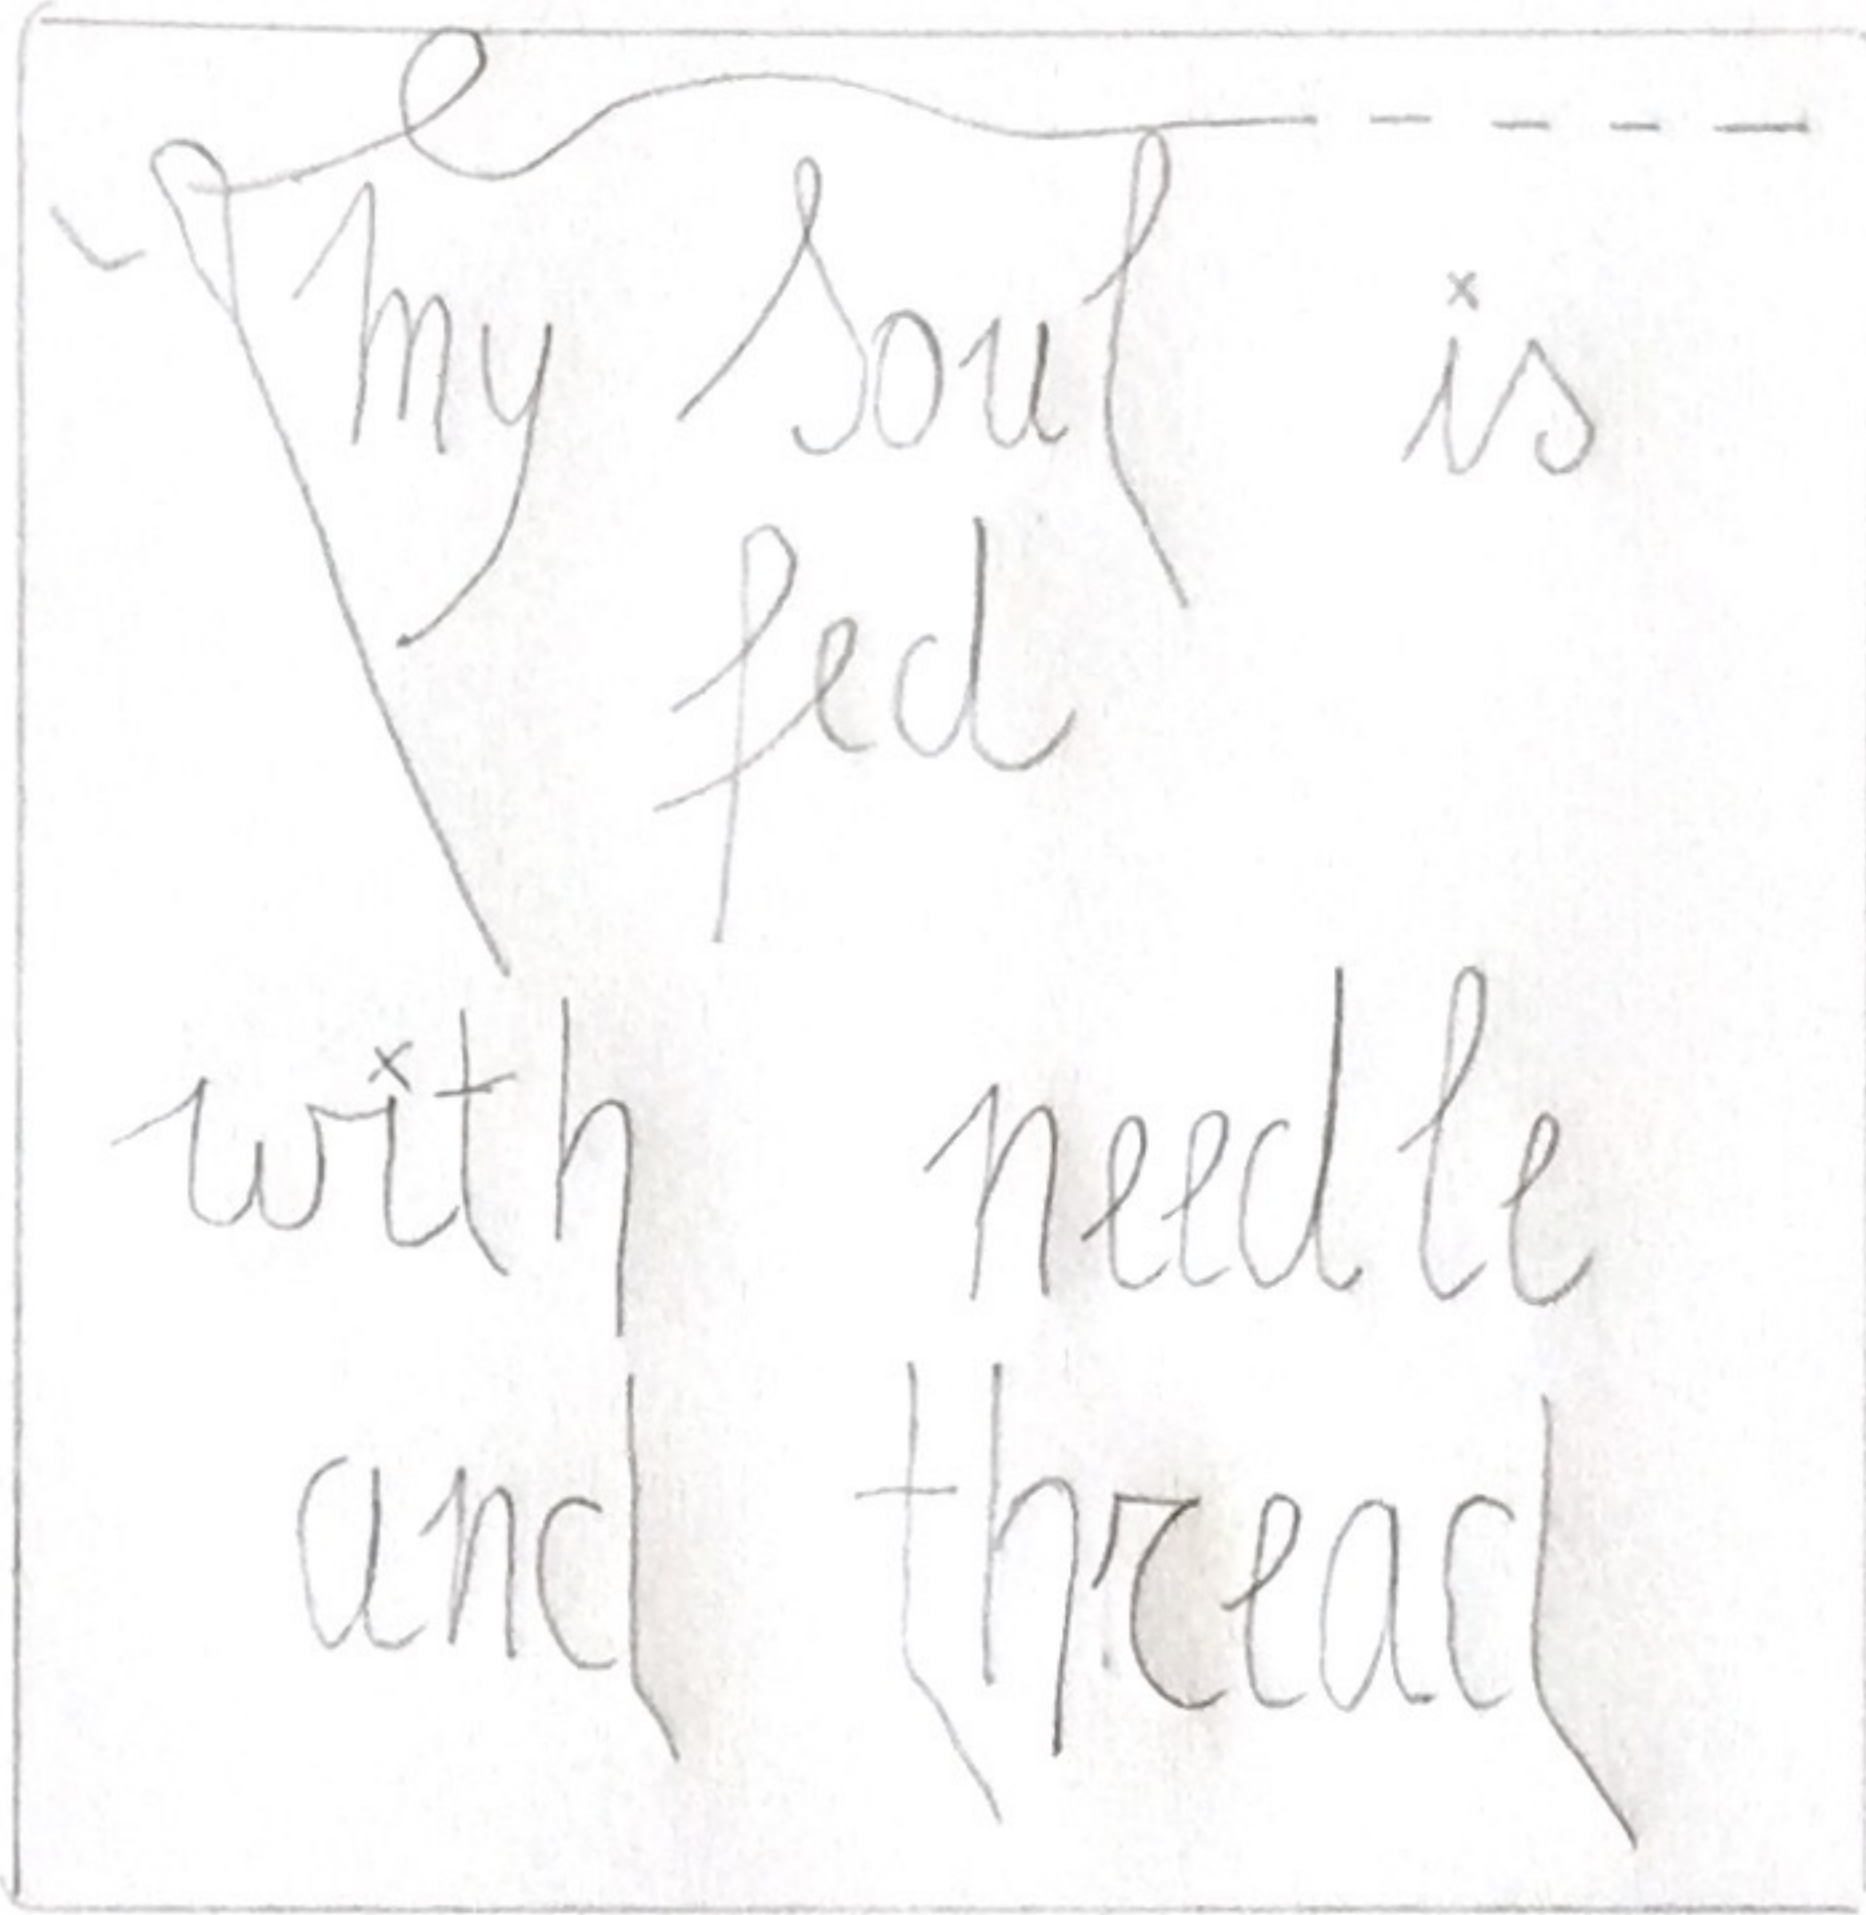 My soul is
fed
with needle
and thread